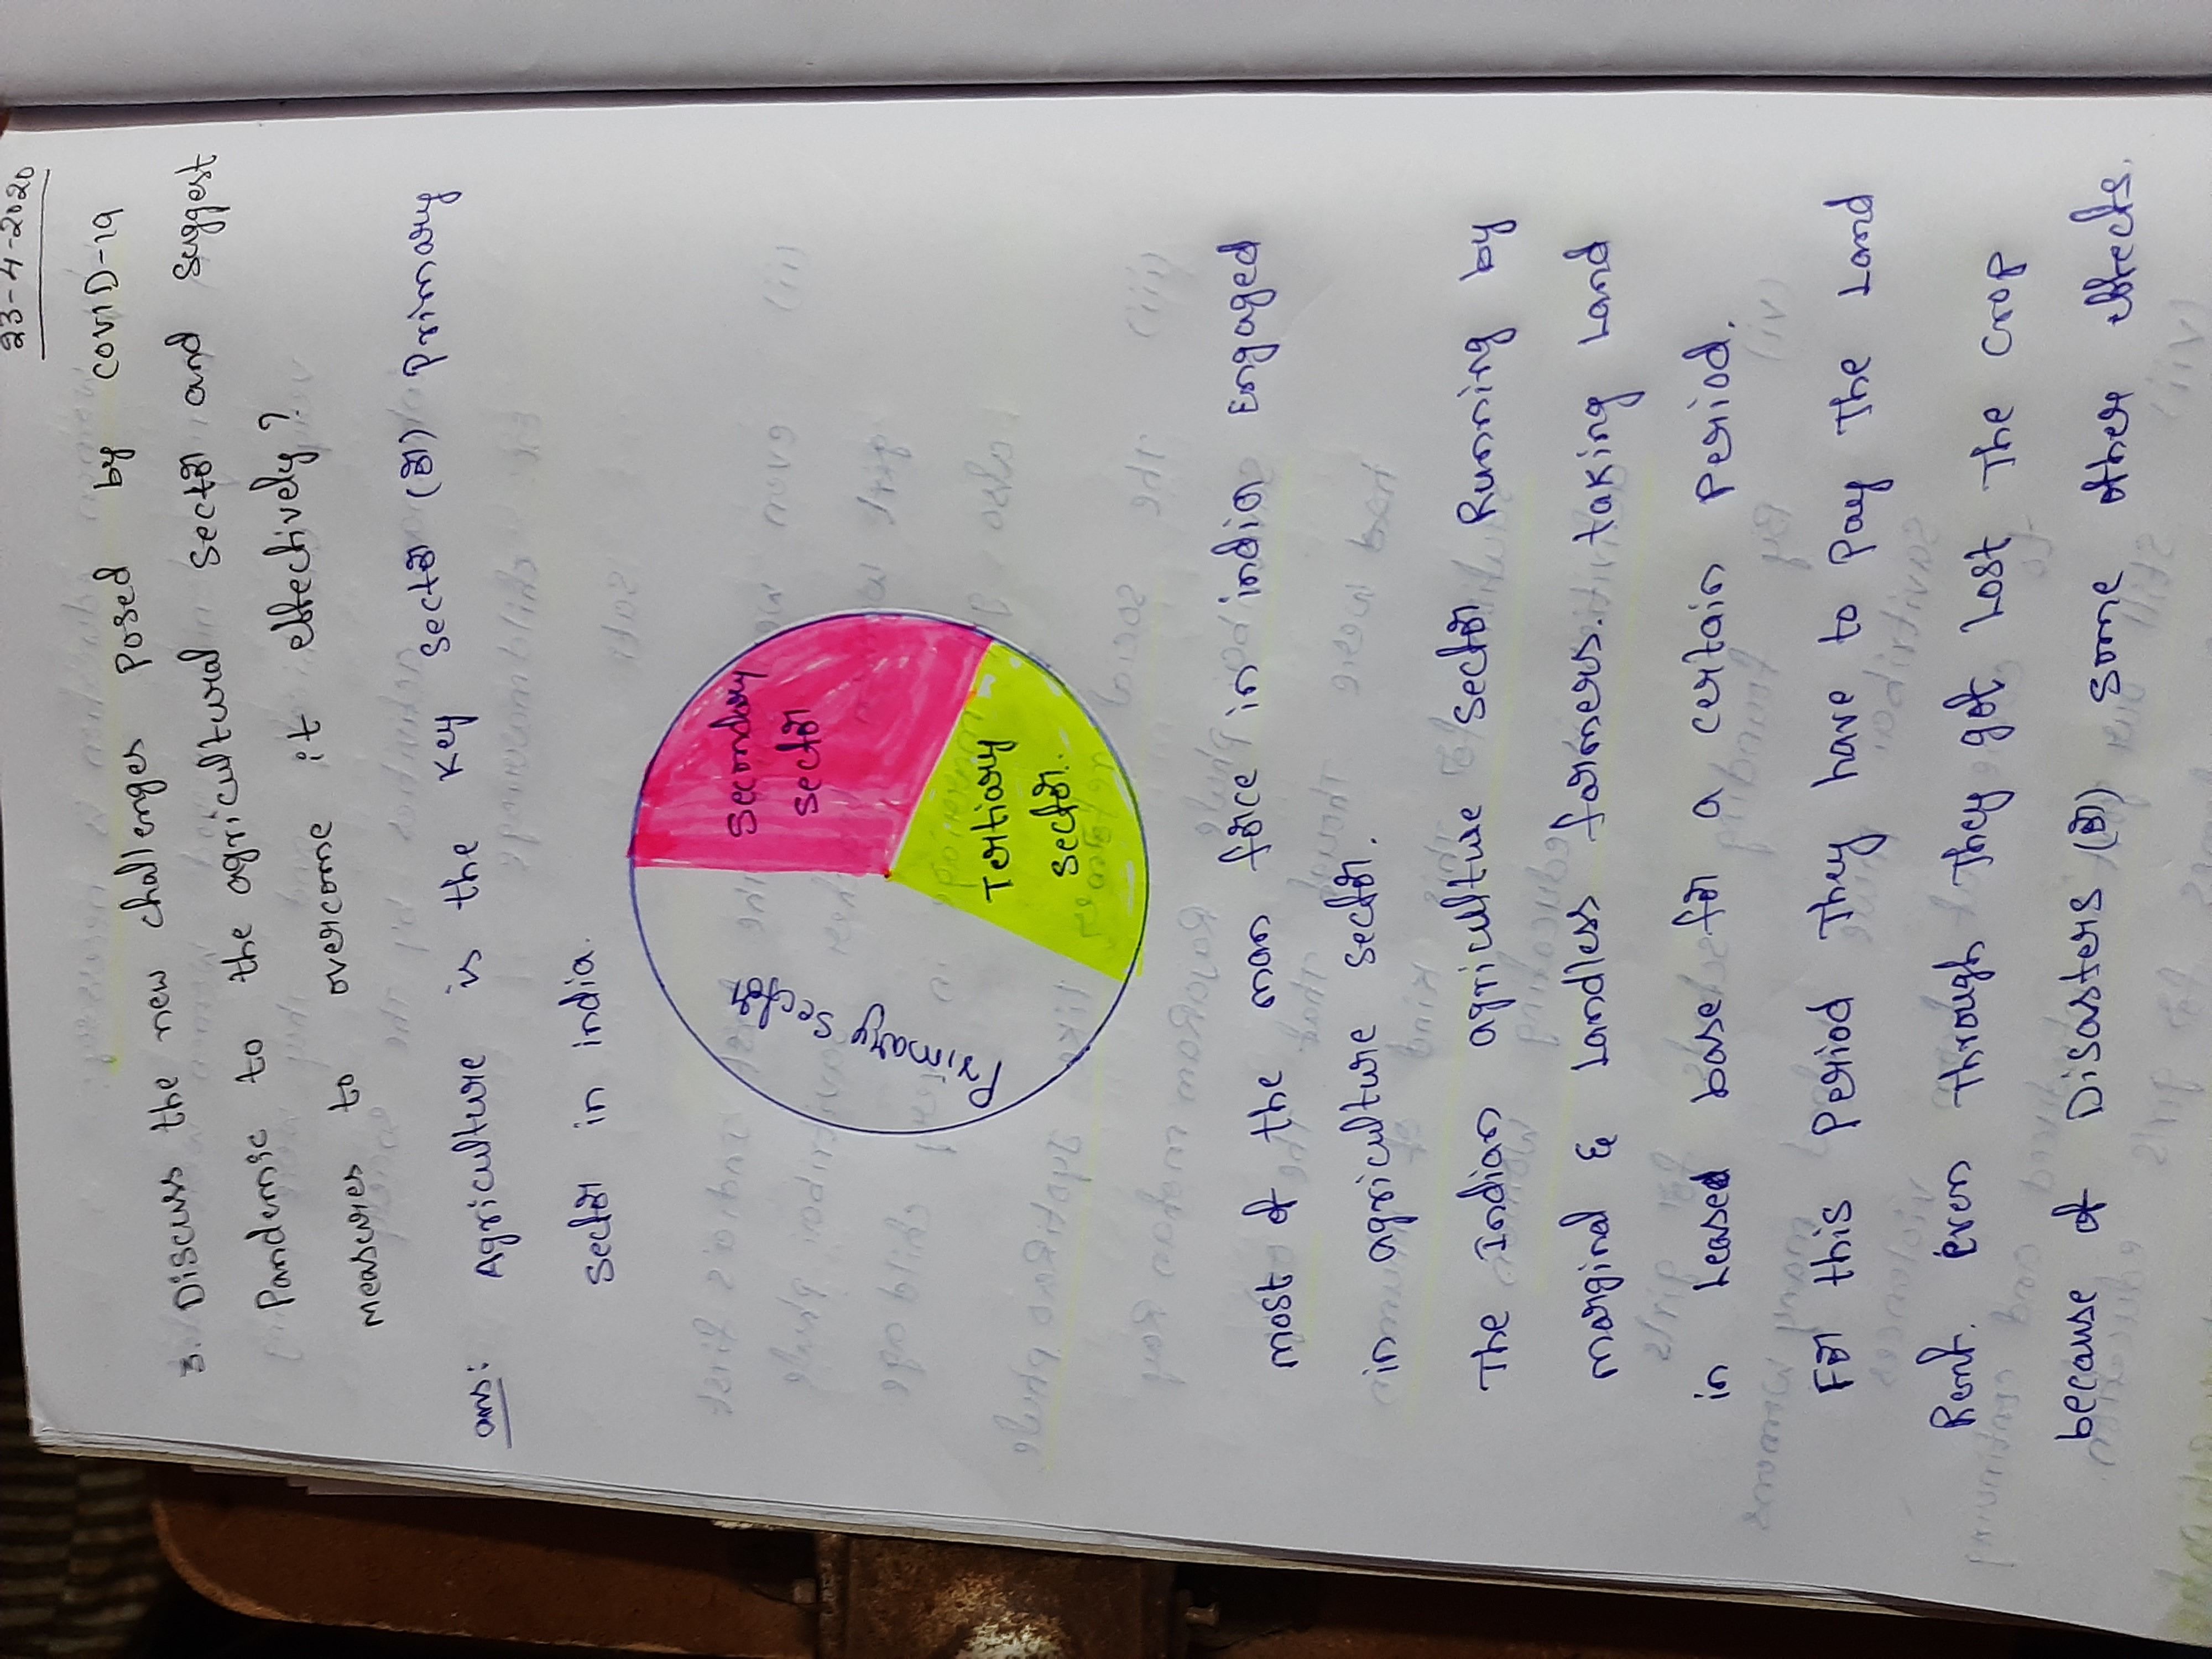 23-4-2020
3. Discuss the new challenges posed by COVID-19
Pandemic to the agricultural sector and suggest
measures to overcome it effectively?
ans: Agriculture is the key sector (or) Primary
sector in india.
Secondary
sector
Primary
sector
Tertiary
sector.
most of the man force in india Engaged
in agriculture sector.
The Indian agriculture sector Running by
marginal & Landless farmers. taking Land
in Leased base for a certain Period.
For this Period They have to Pay The Land
Rent. Even through They got Lost The crop
because of Disasters (or) some other effects.